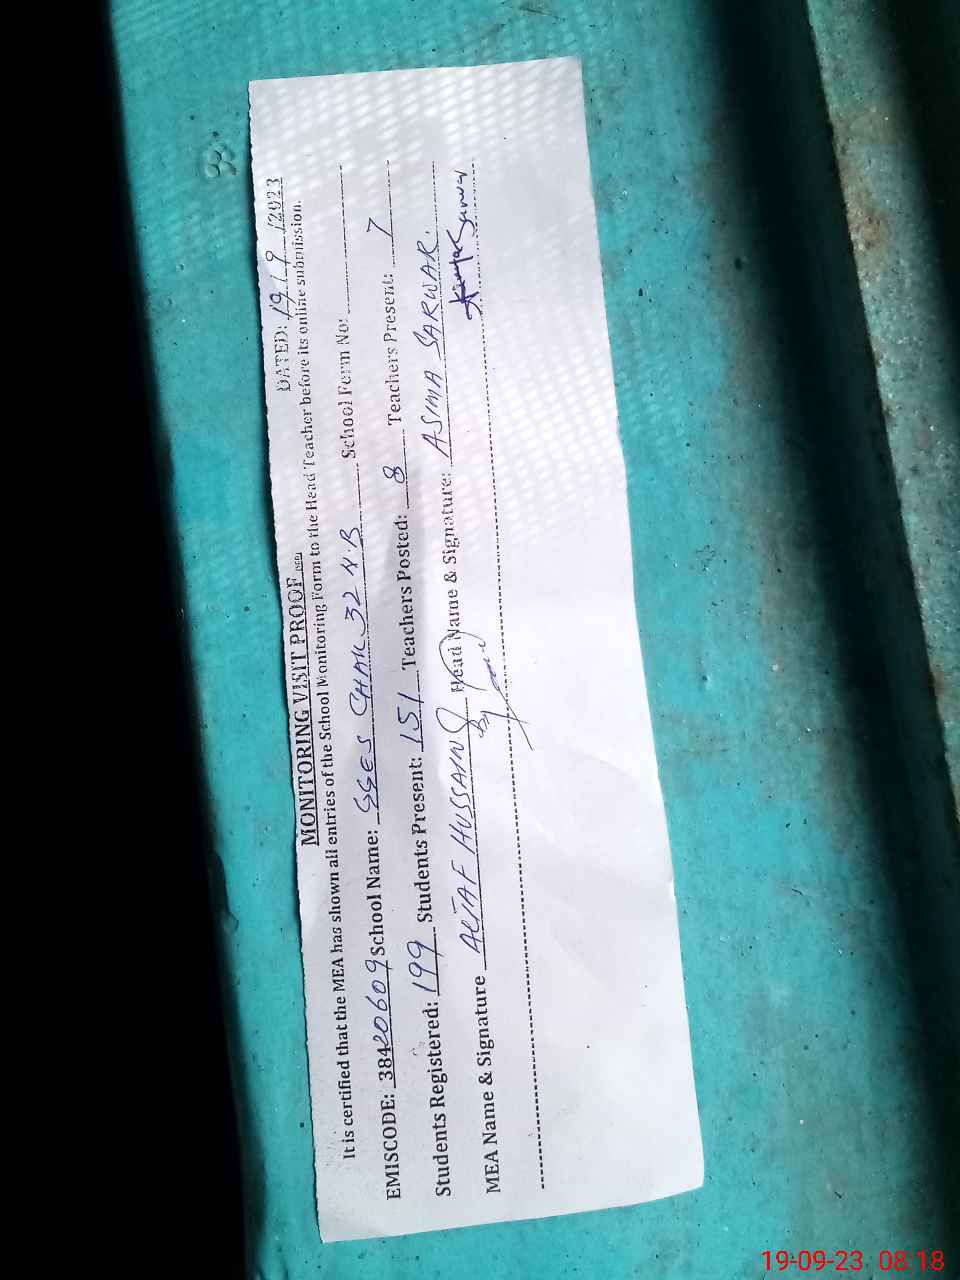 MONITORING VISIT PROOF DATED: 19/9/2023
It is certified that the MEA has shown all entries of the School Monitoring Form to the Head Teacher before its online submission.
EMISCODE: 38420609 School Name: GGES CHAK 32 N.B School Form No:
Students Registered: 199 Students Present: 151 Teachers Posted: 8 Teachers Present: 7
MEA Name & Signature ALTAF HUSSAIN Head Name & Signature: ASIMA SARWAR.
19-09-23 08:18